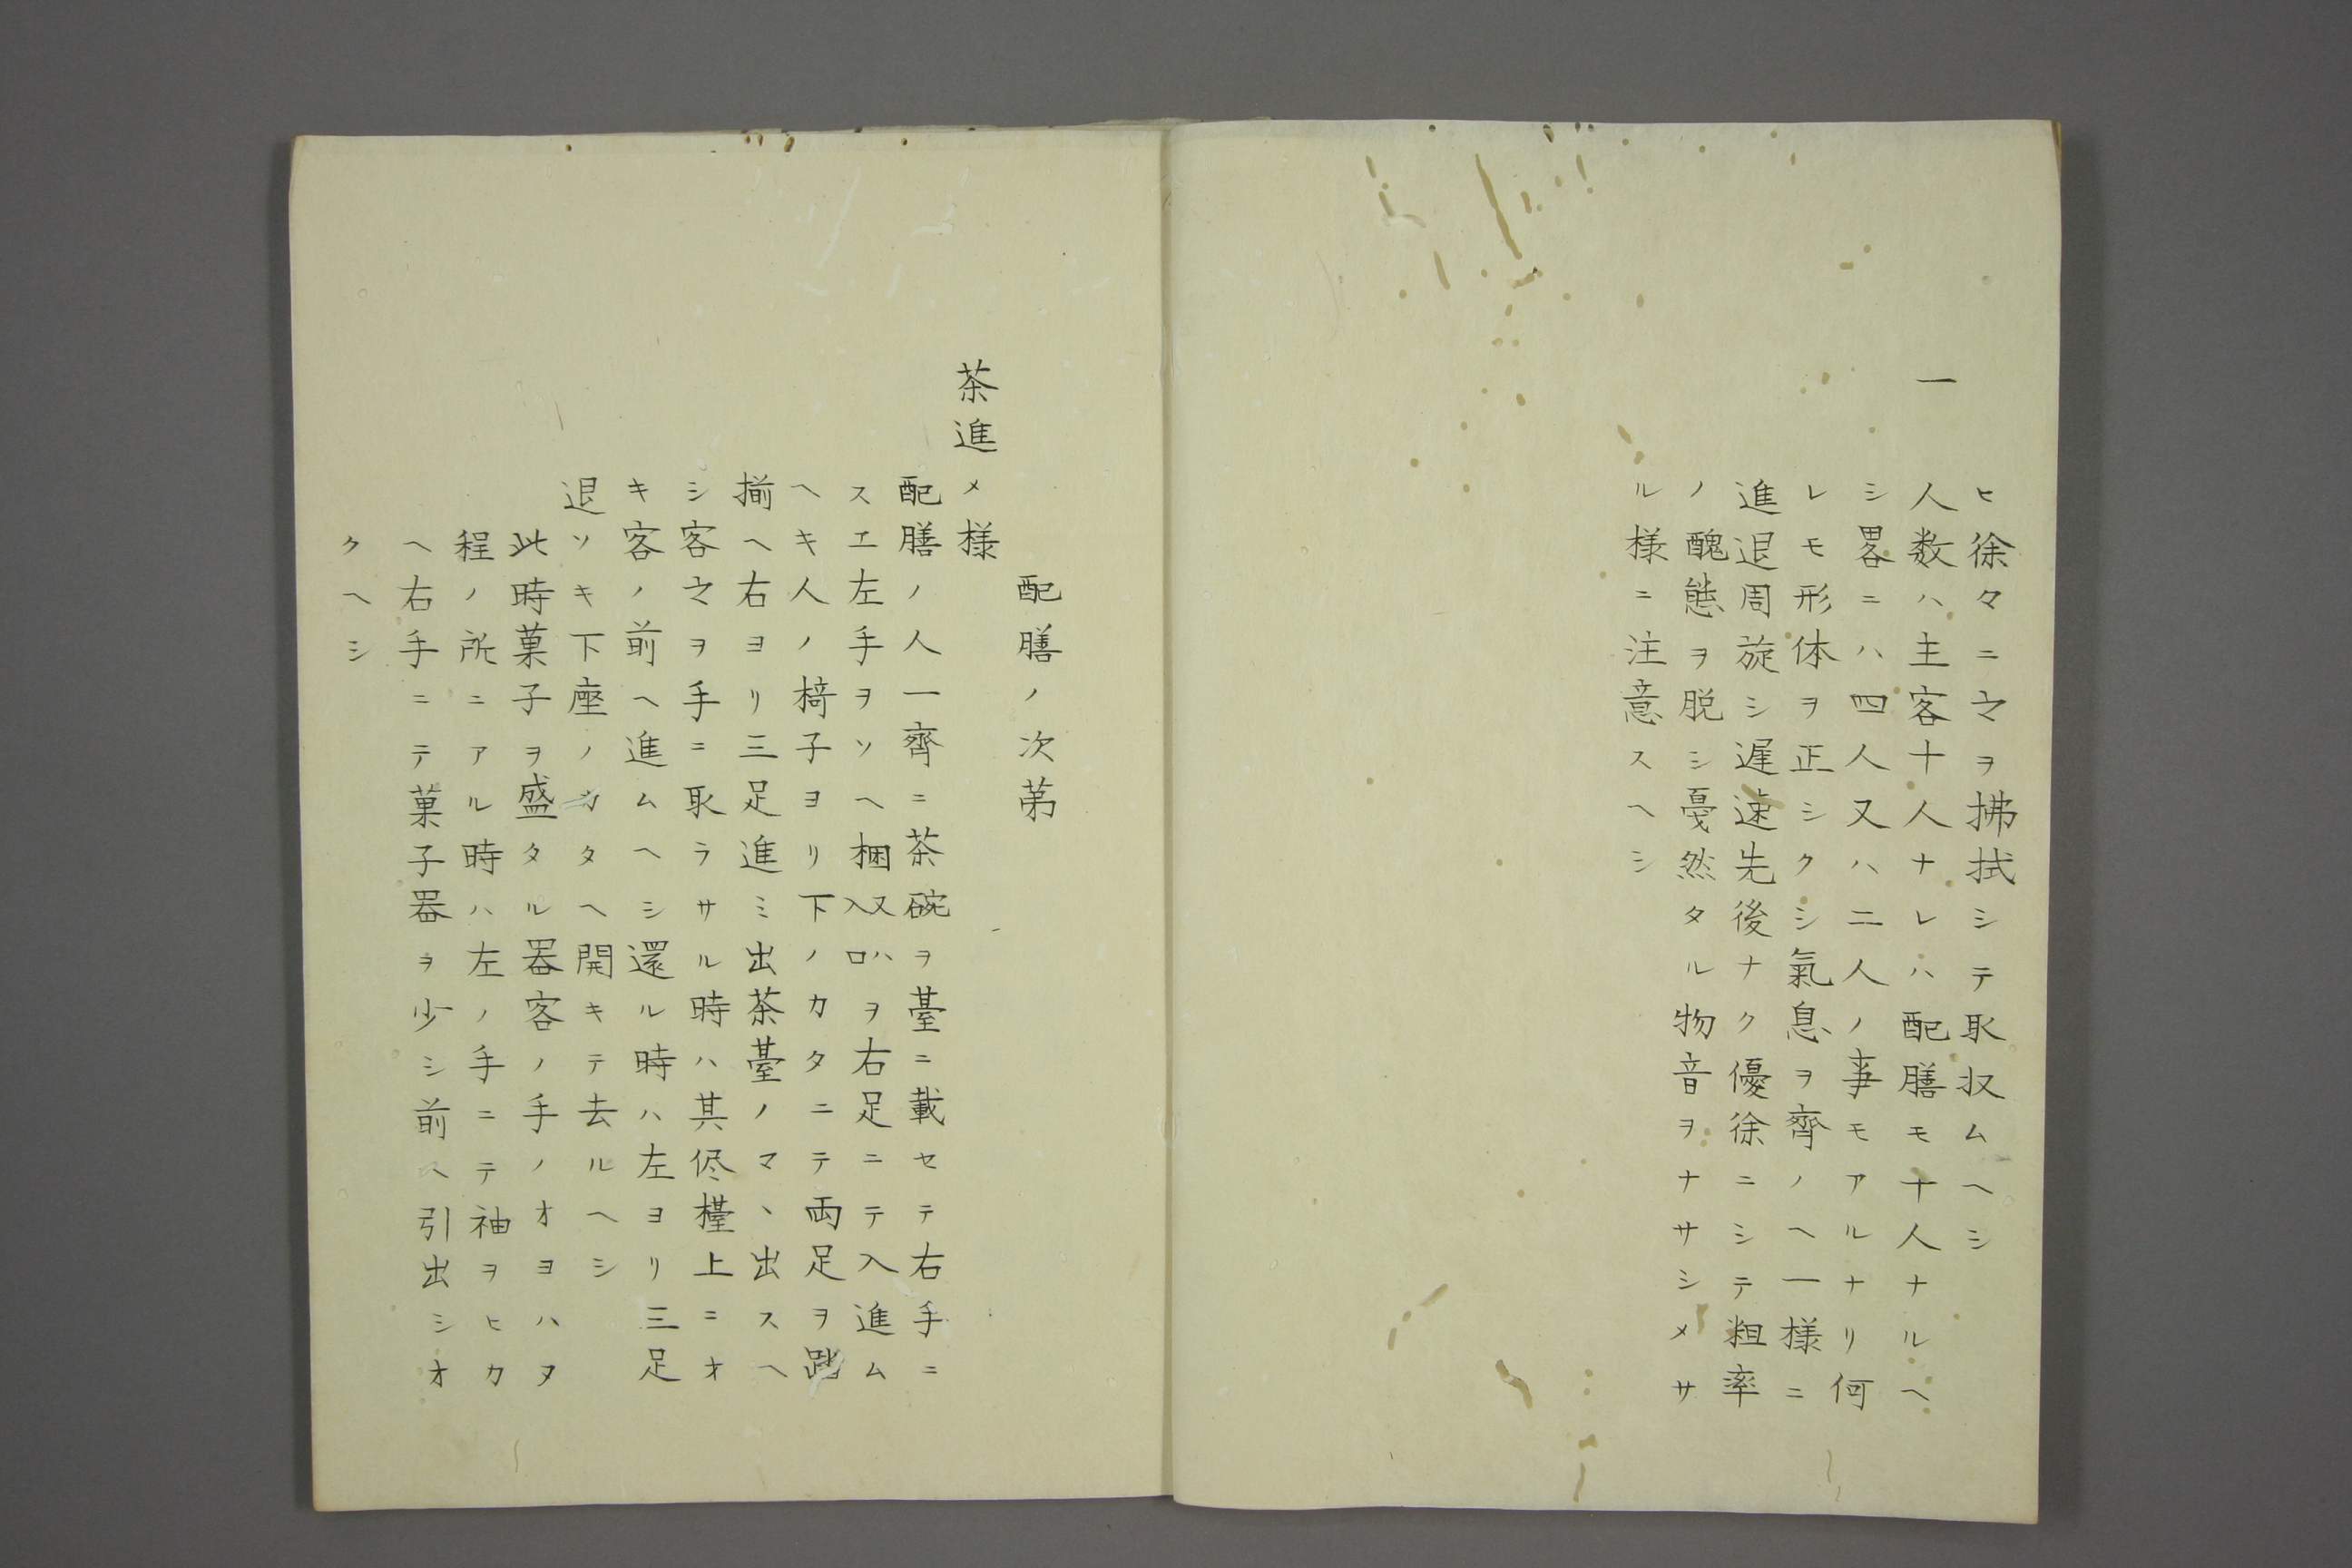 ヒ徐々ニ之ヲ拂拭シテ取収ムヘシ
一
人数ハ主客十人ナレハ配膳モ十人ナルヘ
シ畧ニハ四人又ハ二人ノ事モアルナリ何
レモ形体ヲ正シクシ氣息ヲ齊ノヘ一様ニ
進退周旋シ遅速先後ナク優徐ニシテ粗率
ノ醜態ヲ脱シ戞然タル物音ヲナサシメサ
ル様ニ注意スヘシ
配膳ノ次第
茶進メ様
配膳ノ人一齊ニ茶碗ヲ臺ニ載セテ右手ニ
スヱ左手ヲソヘ梱又ハ入口ヲ右足ニテ入進ム
ヘキ人ノ椅子ヨリ下ノカタニテ両足ヲ踏
揃ヘ右ヨリ三足進ミ出茶臺ノマヽ出スヘ
シ客之ヲ手ニ取ラサル時ハ其侭檯上ニオ
キ客ノ前ヘ進ムヘシ還ル時ハ左ヨリ三足
退ソキ下座ノカタヘ開キテ去ルヘシ
此時菓子ヲ盛タル器客ノ手ノオヨハヌ
程ノ所ニアル時ハ左ノ手ニテ袖ヲヒカ
ヘ右手ニテ菓子器ヲ少シ前ヘ引出シオ
クヘシ